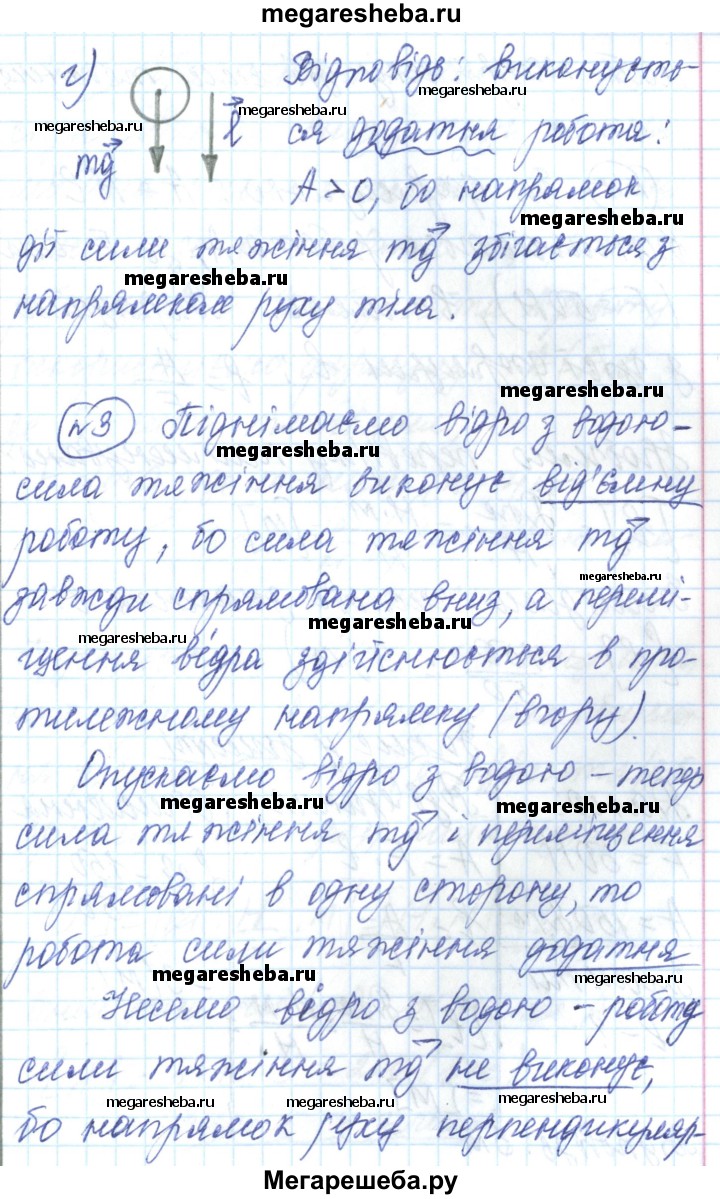 megaresheba.ru
г) Відповідь: виконуєть-
megaresheba.ru
megaresheba.ru megaresheba.ru
mg l ся додатня робота:
A > 0, бо напрямок
megaresheba.ru
дії сили тяжіння mg збігається з
megaresheba.ru
напрямком руху тіла.
megaresheba.ru
№3 Піднімаємо відро з водою-
megaresheba.ru
сила тяжіння виконує від'ємну
роботу, бо сила тяжіння mg
megaresheba.ru
завжди спрямована вниз, а перемі-
megaresheba.ru megaresheba.ru
щення відра здійснюється в про-
тилежному напрямку (вгору).
Опускаємо відро з водою - тепер
megaresheba.ru megaresheba.ru
сила тяжіння mg і переміщення
спрямовані в одну сторону, то
робота сили тяжіння додатня
megaresheba.ru megaresheba.ru
Несемо відро з водою - роботу
сили тяжіння mg не виконує,
megaresheba.ru megaresheba.ru megaresheba.ru
бо напрямок руху перпендикуляр-
Мегарешеба.ру